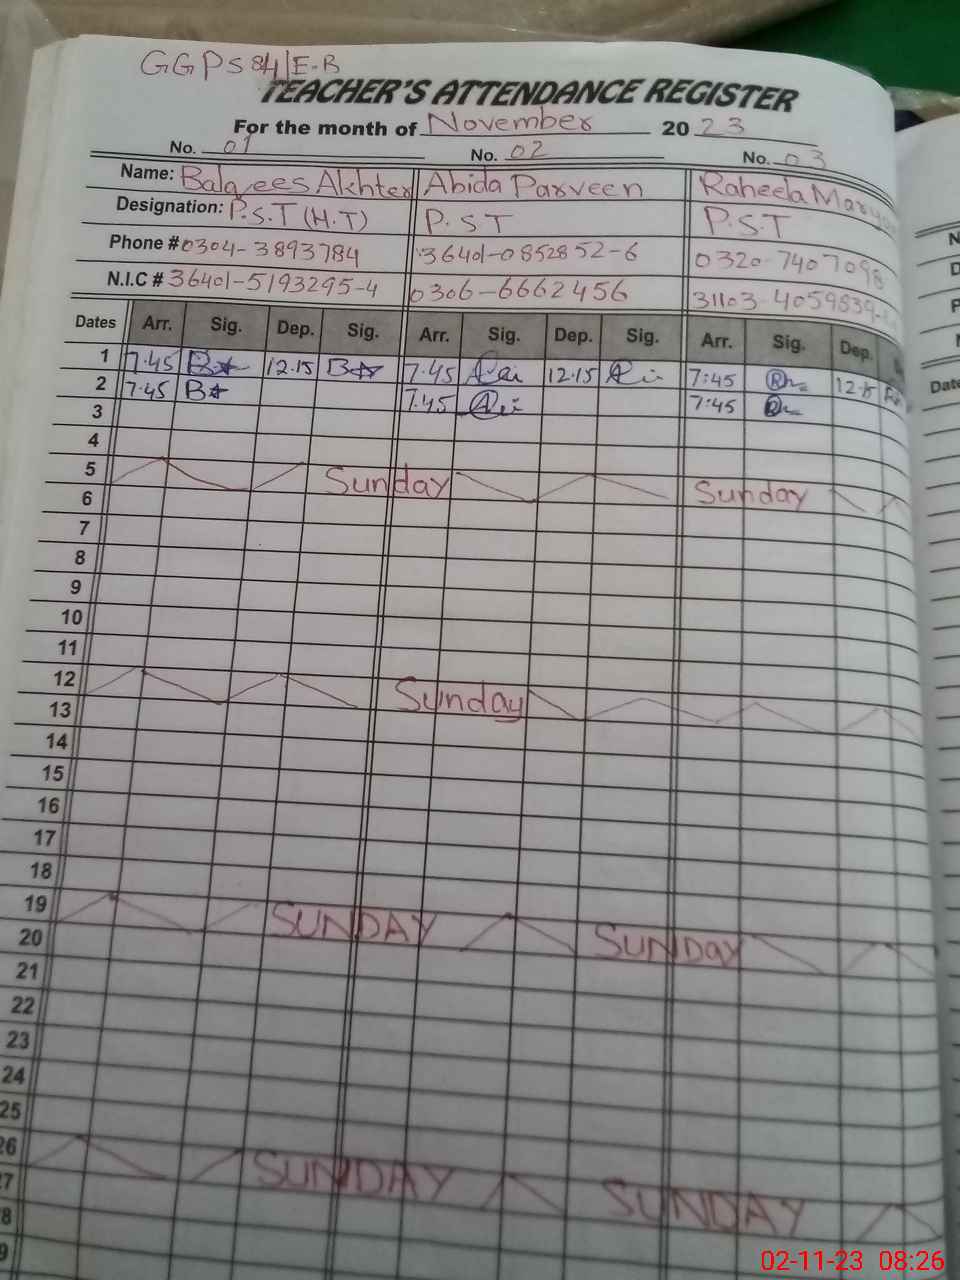 GGPS 84/E-B
TEACHER'S ATTENDANCE REGISTER
For the month of November 2023
No. 01 No. 02 No. 03
Name: Balqees Akhter Abida Parveen Raheela
Designation: P.S.T (H.T) P.ST P.S.T
Phone # 0304-3893784 36401-0852852-6 0320-7407098
N.I.C # 36401-5193295-4 0306-6662456 31103-4059839-
Dates Arr. Sig. Dep. Sig. Arr. Sig. Dep. Sig. Arr. Sig. Dep.
1 7.45 12.15 7.45 12.15 7:45 12.15
2 7.45 7.45 7:45
3
4
5 Sunday Sunday
6
7
8
9
10
11
12 Sunday
13
14
15
16
17
18
19 SUNDAY SUNDay
20
21
22
23
24
25
26 SUNDAY SUNDAY
27
28
02-11-23 08:26